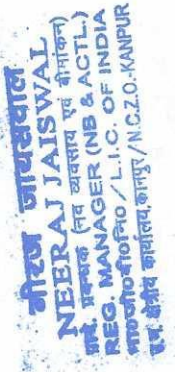 नीरज जायसवाल
NEERAJ JAISWAL
प्रबन्धक (नव व्यवसाय एवं बीमांकन)
REG. MANAGER (NB & ACTL.)
भा०जी०बी०नि० / L.I.C. OF INDIA
क्षेत्रीय कार्यालय कानपुर / N.C.Z.O.-KANPUR